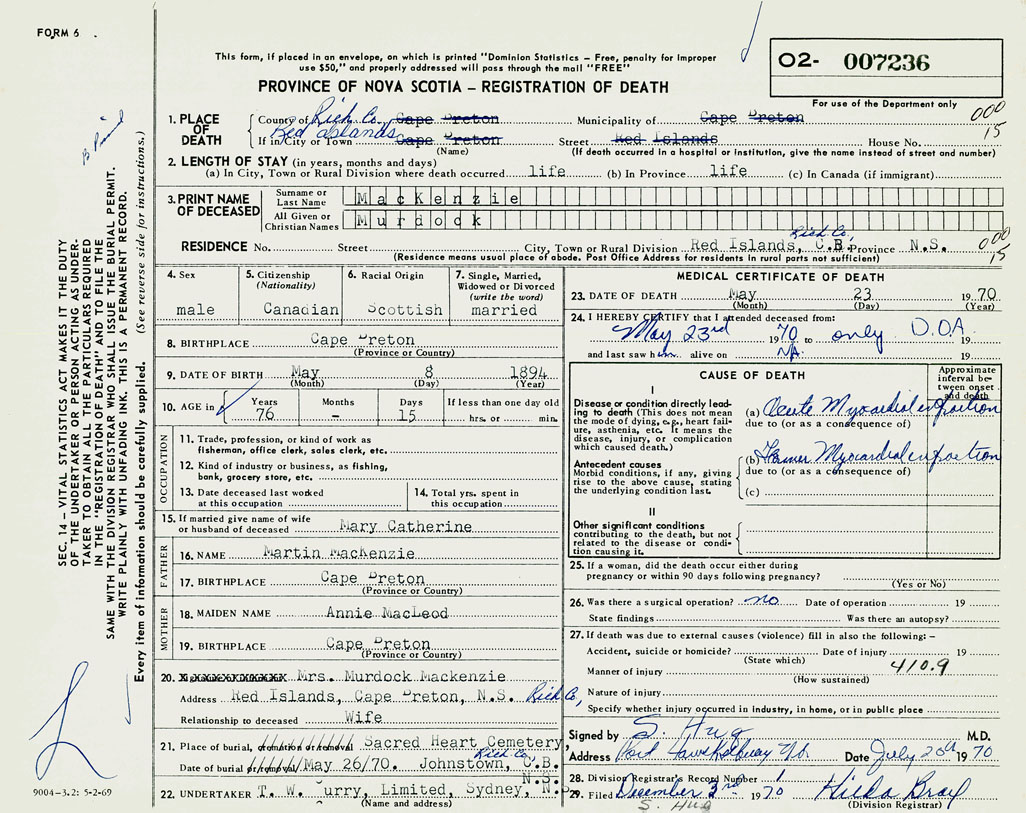 FORM 6
This form, if placed in an envelope, on which is printed "Dominion Statistics – Free, penalty for improper
use $50," and properly addressed will pass through the mail "FREE"
O2- 007236
PROVINCE OF NOVA SCOTIA – REGISTRATION OF DEATH
For use of the Department only
000
15
1. PLACE OF DEATH
County of Rich Co. Cape Breton Municipality of Cape Breton
Red Islands
If in City or Town Cape Breton Street Red Islands House No.
(Name) (If death occurred in a hospital or institution, give the name instead of street and number)
2. LENGTH OF STAY (in years, months and days)
(a) In City, Town or Rural Division where death occurred life (b) In Province life (c) In Canada (if immigrant)
3. PRINT NAME OF DECEASED
Surname or Last Name MacKenzie
All Given or Christian Names Murdock
Rich Co.
RESIDENCE No. Street City, Town or Rural Division Red Islands, C.B. Province N.S.
000
15
(Residence means usual place of abode. Post Office Address for residents in rural parts not sufficient)
4. Sex
male
5. Citizenship
(Nationality)
Canadian
6. Racial Origin
Scottish
7. Single, Married,
Widowed or Divorced
(write the word)
married
8. BIRTHPLACE Cape Breton
(Province or Country)
9. DATE OF BIRTH May 8 1894
(Month) (Day) (Year)
10. AGE in
Years Months Days If less than one day old
76 – 15 hrs. or min.
OCCUPATION
11. Trade, profession, or kind of work as
fisherman, office clerk, sales clerk, etc.
12. Kind of industry or business, as fishing,
bank, grocery store, etc.
13. Date deceased last worked
at this occupation
14. Total yrs. spent in
this occupation
15. If married give name of wife
or husband of deceased Mary Catherine
FATHER
16. NAME Martin MacKenzie
17. BIRTHPLACE Cape Breton
(Province or Country)
MOTHER
18. MAIDEN NAME Annie MacLeod
19. BIRTHPLACE Cape Breton
(Province or Country)
20. Mrs. Murdock Mackenzie
Address Red Islands, Cape Breton, N.S. Rich Co,
Relationship to deceased Wife
21. Place of burial, cremation or removal Sacred Heart Cemetery,
Rich Co.
Date of burial or removal May 26/70. Johnstown, C.B.
N.S.
22. UNDERTAKER T. W. urry, Limited, Sydney, N.S.
(Name and address)
MEDICAL CERTIFICATE OF DEATH
23. DATE OF DEATH May 23 1970
(Month) (Day) (Year)
24. I HEREBY CERTIFY that I attended deceased from:
May 23rd 1970 to only D.O.A. 19
and last saw him alive on NA. 19
CAUSE OF DEATH
Approximate
interval be-
tween onset
and death
I
Disease or condition directly lead-
ing to death (This does not mean
the mode of dying, e.g., heart fail-
ure, asthenia, etc. It means the
disease, injury, or complication
which caused death.)
(a) Acute Myocardial infarction
due to (or as a consequence of)
Antecedent causes
Morbid conditions, if any, giving
rise to the above cause, stating
the underlying condition last.
(b) Former Myocardial infarction
due to (or as a consequence of)
(c)
II
Other significant conditions
contributing to the death, but not
related to the disease or condi-
tion causing it.
25. If a woman, did the death occur either during
pregnancy or within 90 days following pregnancy?
(Yes or No)
26. Was there a surgical operation? no Date of operation 19
State findings Was there an autopsy?
27. If death was due to external causes (violence) fill in also the following: –
Accident, suicide or homicide? Date of injury 19
(State which)
Manner of injury 410.9
(How sustained)
Nature of injury
Specify whether injury occurred in industry, in home, or in public place
Signed by S. Hug M.D.
Address Port Hawkesbury N.S. Date July 20th 1970
28. Division Registrar's Record Number 1
29. Filed December 3rd 1970 Hilda Bray
S. Hug (Division Registrar)
SEC. 14 – VITAL STATISTICS ACT MAKES IT THE DUTY
OF THE UNDERTAKER OR PERSON ACTING AS UNDER-
TAKER TO OBTAIN ALL THE PARTICULARS REQUIRED
IN THE "REGISTRATION OF DEATH" AND TO FILE THE
SAME WITH THE DIVISION REGISTRAR WHO SHALL ISSUE THE BURIAL PERMIT.
WRITE PLAINLY WITH UNFADING INK. THIS IS A PERMANENT RECORD.
Every item of information should be carefully supplied. (See reverse side for instructions.)
9004-3.2: 5-2-69